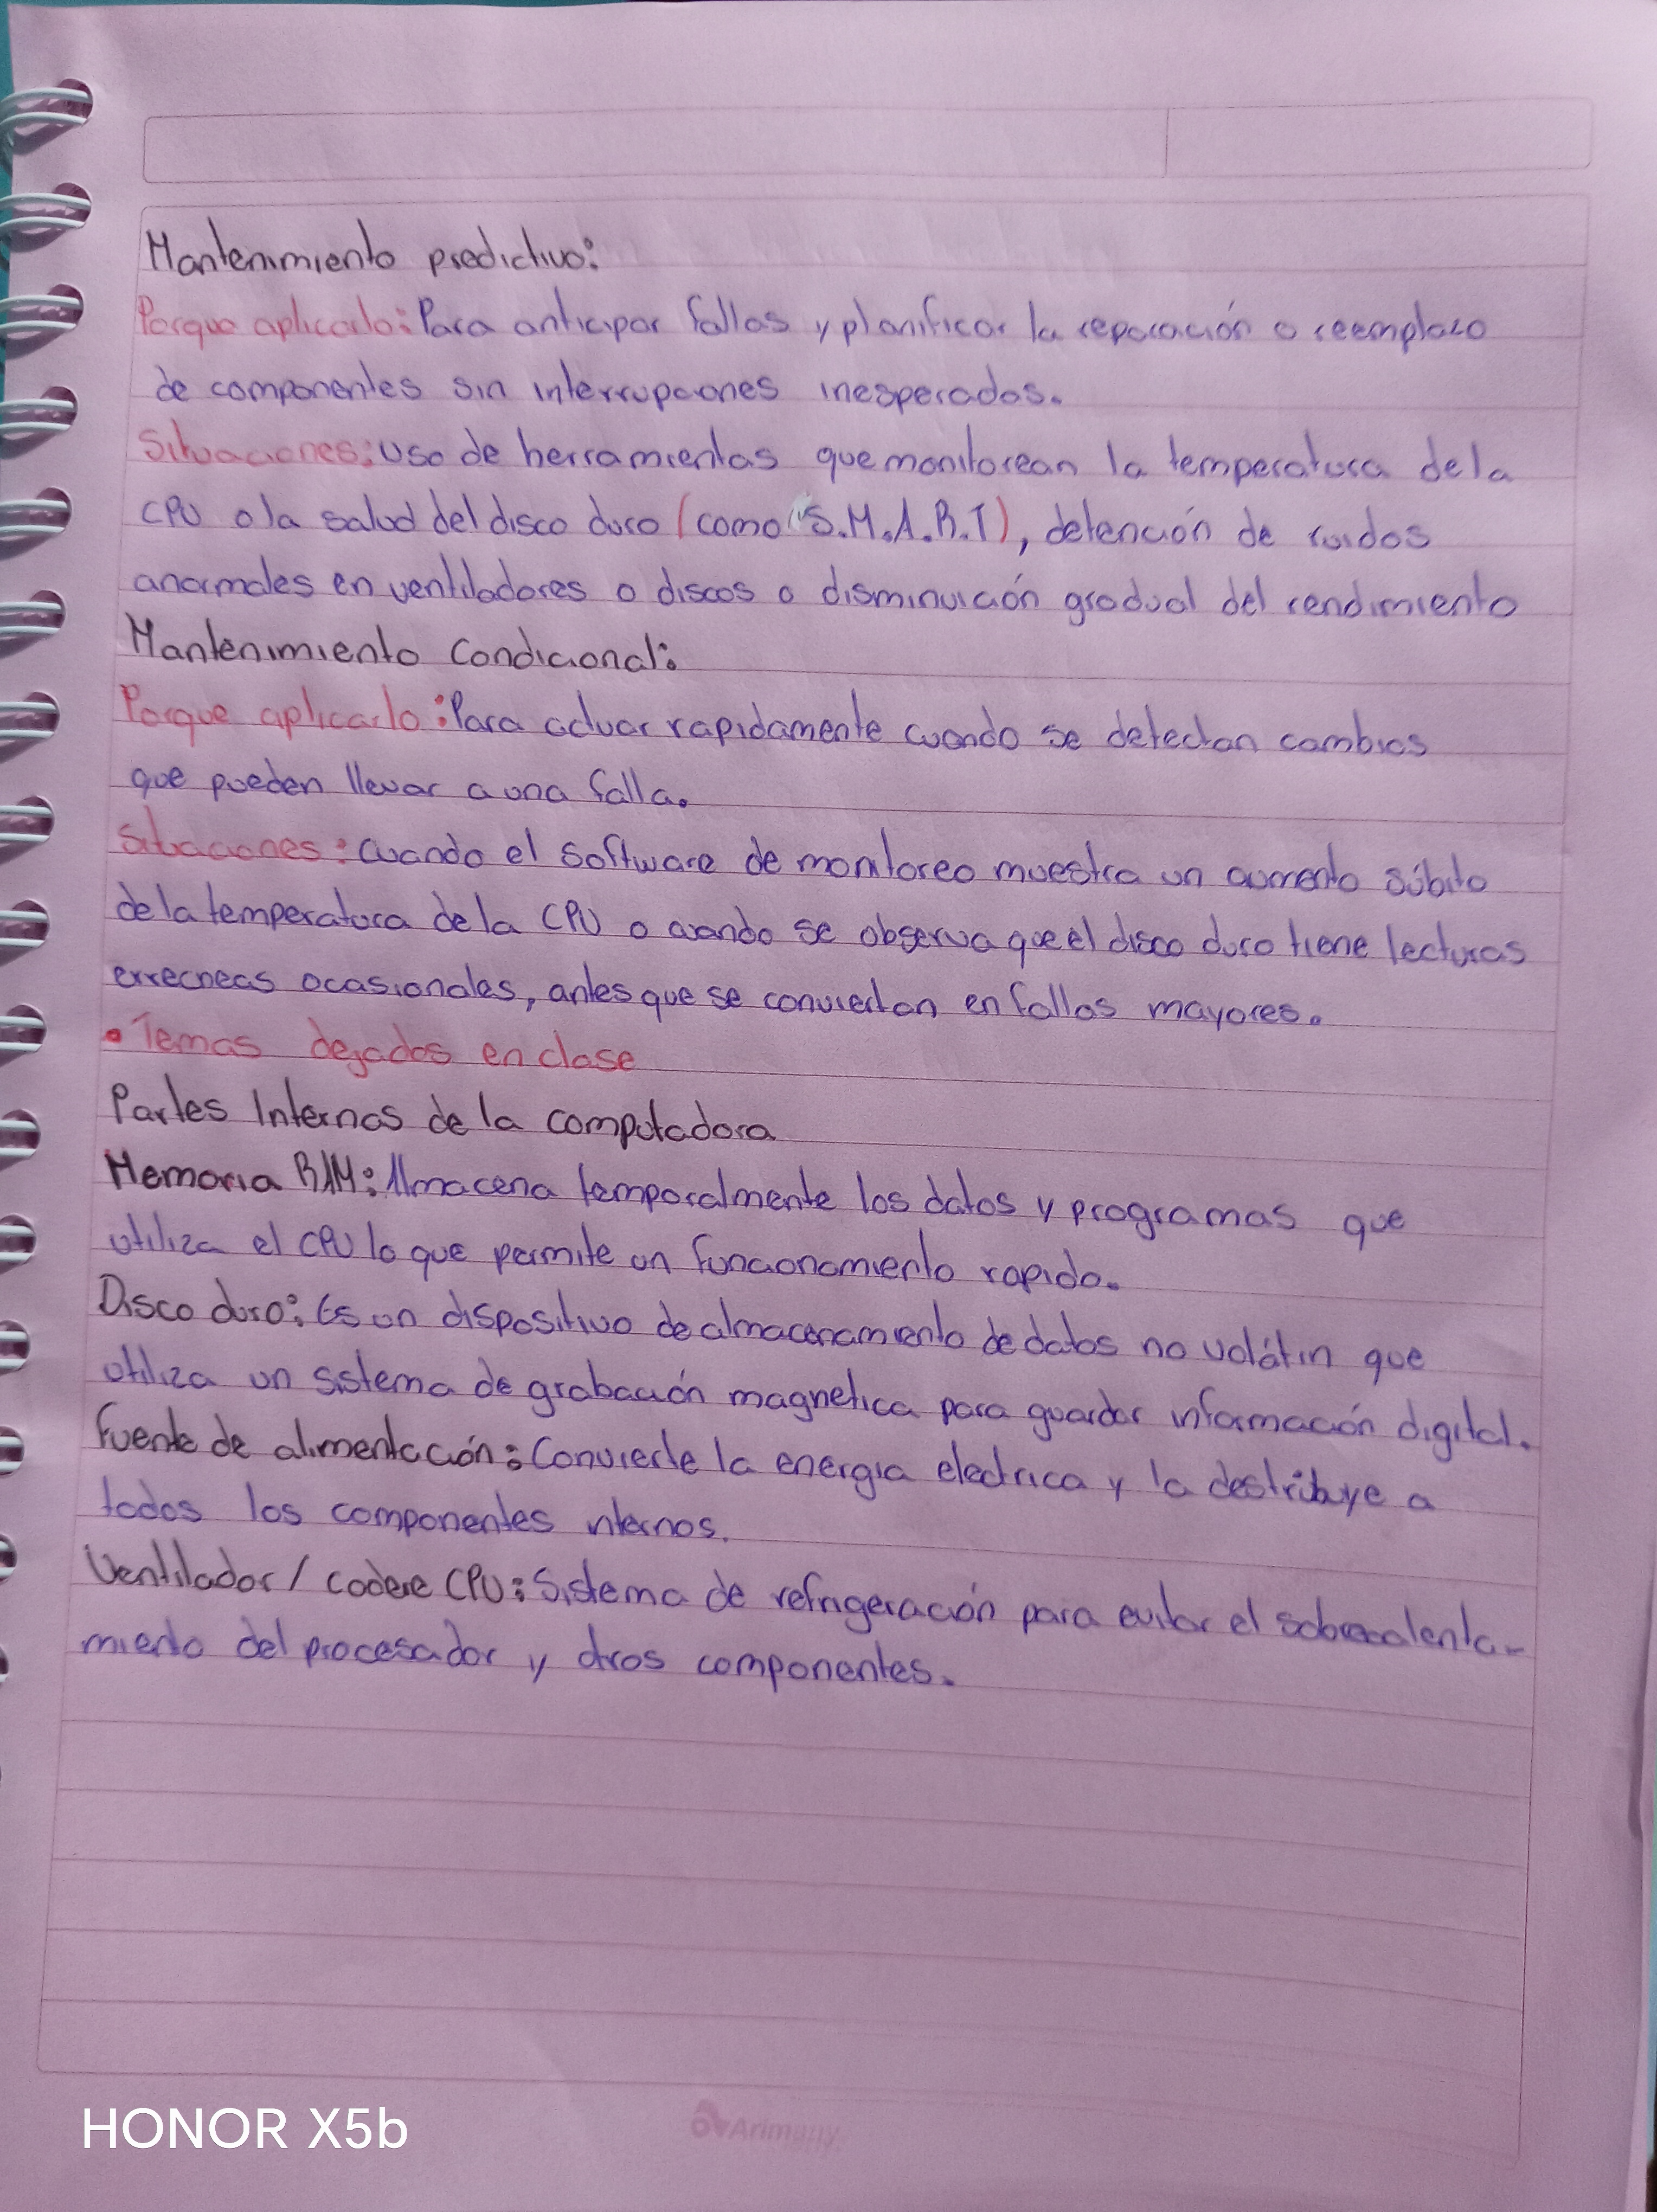 Mantenimiento predictivo:
Porque aplicarlo: Para anticipar fallas y planificar la reparación o reemplazo
de componentes sin interrupciones inesperadas.
Situaciones: uso de herramientas que monitorean la temperatura de la
CPU o la salud del disco duro (como "S.M.A.R.T), detención de ruidos
anormales en ventiladores o discos o disminuición gradual del rendimiento
Mantenimiento Condicional:
Porque aplicarlo: Para actuar rapidamente cuando se detectan cambios
que pueden llevar a una falla.
Situaciones: cuando el software de monitoreo muestra un aumento súbito
de la temperatura de la CPU o cuando se observa que el disco duro tiene lecturas
erreoneas ocasionales, antes que se conviertan en fallas mayores.
• Temas dejados en clase
Partes Internas de la computadora
Memoria RAM: Almacena temporalmente los datos y programas que
utiliza el CPU lo que permite un funcionamiento rapido.
Disco duro: Es un dispositivo de almacenamiento de datos no volátin que
utiliza un sistema de grabación magnetica para guardar información digital.
Fuente de alimentación: Convierte la energia electrica y la destribuye a
todos los componentes internos.
Ventilador / CPU: Sistema de refrigeración para evitar el sobrecalenta-
miento del procesador y otros componentes.
Arimany
HONOR X5b